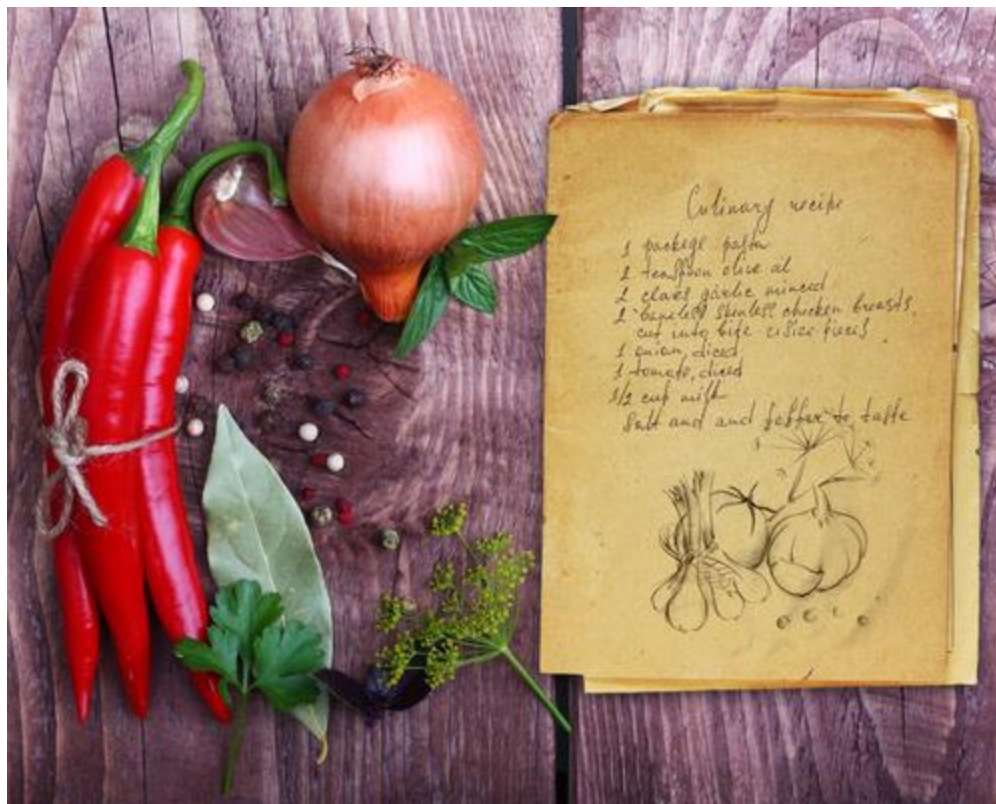 Culinary recipe
1 package pasta
1 teaspoon olive oil
2 claves garlic minced
2 boneless skinless chicken breasts,
cut into bite size pieces
1 onion, diced
1 tomato, diced
1/2 cup milk
Salt and and pepper to taste